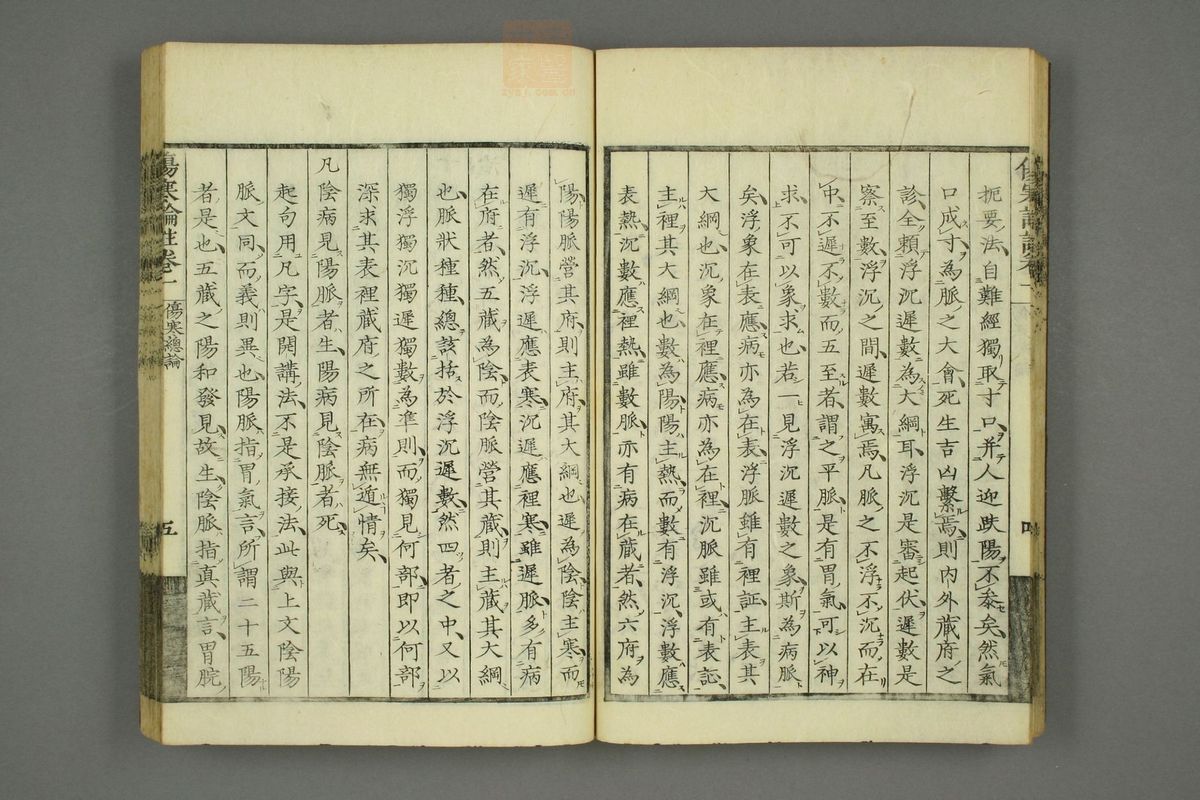 扼要法自難經獨取寸口并人迎趺陽不參矣然氣
口成寸為脈之大會死生吉凶繫焉則內外藏府之
診全賴浮沉遲數為大綱耳浮沉是審起伏遲數是
察至數浮沉之間遲數寓焉凡脈之不浮不沉而在
中不遲不數而五至者謂之平脈是有胃氣可以神
求不可以象求也若一見浮沉遲數之象斯為病脈
矣浮象在表應病亦為在表浮脈雖有裡証主表其
大綱也沉象在裡應病亦為在裡沉脈雖或有表証
主裡其大綱也數為陽陽主熱而數有浮沉浮數應
表熱沉數應裡熱雖數脈亦有病在藏者然六府為
四
陽陽脈營其府則主府其大綱也遲為陰陰主寒而
遲有浮沉浮遲應表寒沉遲應裡寒雖遲脈多有病
在府者然五藏為陰而陰脈營其藏則主藏其大綱
也脈狀種種總該括於浮沉遲數然四者之中又以
獨浮獨沉獨遲獨數為準則而獨見何部即以何部
深求其表裡藏府之所在病無遁情矣
凡陰病見陽脈者生陽病見陰脈者死
起句用凡字是開講法不是承接法此與上文陰陽
脈文同而義則異也陽脈指胃氣言所謂二十五陽
者是也五藏之陽和發見故生陰脈指真藏言胃脘
傷寒論註卷一 傷寒總論 五
zysj.com.cn